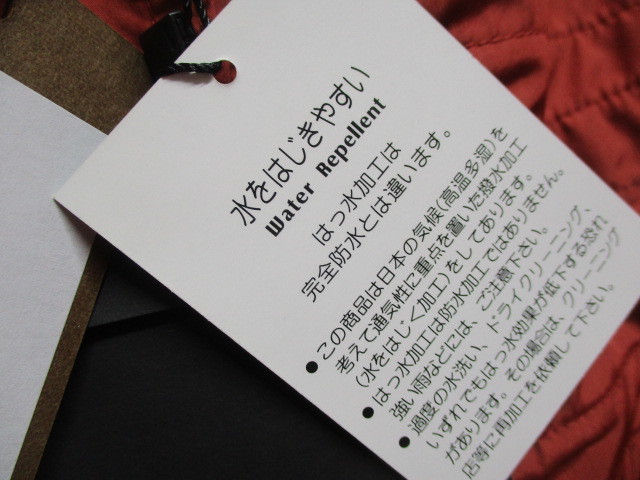 水をはじきやすい
Water Repellent
はっ水加工は
完全防水とは違います。
●この商品は日本の気候(高温多湿)を
考えて通気性に重点を置いた撥水加工
(水をはじく加工)をしてあります。
●はっ水加工は防水加工ではありません。
強い雨などには、ご注意下さい。
●過度の水洗い、ドライクリーニング、
いずれでもはっ水効果が低下する恐れ
があります。その場合は、クリーニング
店等に再加工を依頼して下さい。